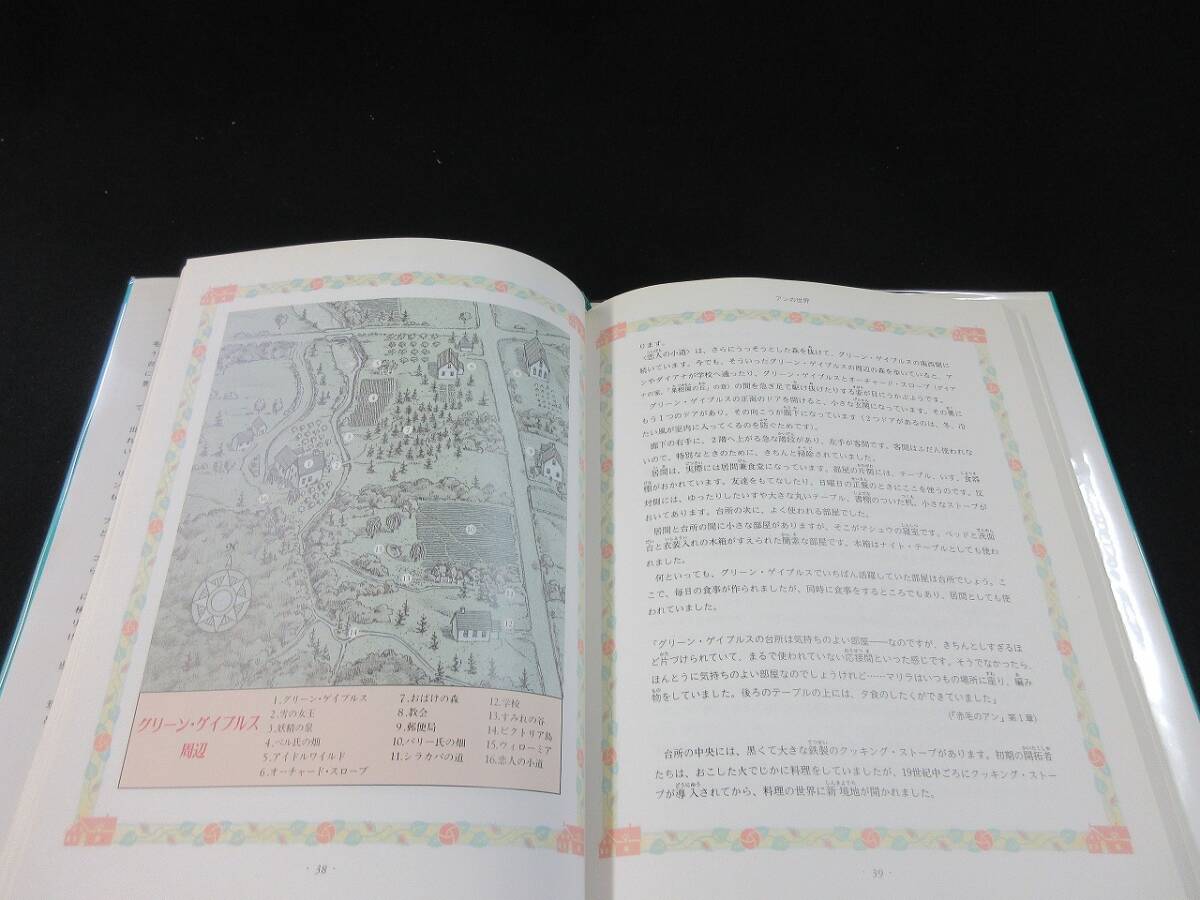 グリーン・ゲイブルス
周辺
1.グリーン・ゲイブルス
2.雪の女王
3.妖精の泉
4.ベル氏の畑
5.アイドルワイルド
6.オーチャード・スロープ
7.おばけの森
8.教会
9.郵便局
10.バリー氏の畑
11.シラカバの道
12.学校
13.すみれの谷
14.ビクトリア島
15.ウィローミア
16.恋人の小道
・38・
アンの世界
ります。
〈恋人の小道〉は、さらにうっそうとした森を抜けて、グリーン・ゲイブルスの南西側に
続いています。今でも、そういったグリーン・ゲイブルスの周辺の森を歩いていると、ア
ンやダイアナが学校へ通ったり、グリーン・ゲイブルスとオーチャード・スロープ（ダイア
ナの家。「果樹園の丘」の意）の間を急ぎ足で駆け抜けたりする姿が目にうかぶようです。
グリーン・ゲイブルスの正面のドアを開けると、小さな玄関になっています。その奥に
もう1つのドアがあり、その向こうが廊下になっています（2つドアがあるのは、冬、冷
たい風が室内に入ってくるのを防ぐためです）。
廊下の右手に、2階へ上がる急な階段があり、左手が客間です。客間はふだん使われな
いので、特別なときのために、きちんと掃除されていました。
居間は、実際には居間兼食堂になっています。部屋の片側には、テーブル、いす、食器
棚がおかれています。友達をもてなしたり、日曜日の正餐のときにここを使うのです。反
対側には、ゆったりしたいすや大きな丸いテーブル、書棚のついた机、小さなストーブが
おいてあります。台所の次に、よく使われる部屋でした。
居間と台所の間に小さな部屋がありますが、そこがマシュウの寝室です。ベッドと洗面
台と衣装入れの木箱がすえられた簡素な部屋です。木箱はナイト・テーブルとしても使わ
れました。
何といっても、グリーン・ゲイブルスでいちばん活躍していた部屋は台所でしょう。こ
こで、毎日の食事が作られましたが、同時に食事をするところでもあり、居間としても使
われていました。
「グリーン・ゲイブルスの台所は気持ちのよい部屋――なのですが、きちんとしすぎるほ
ど片づけられていて、まるで使われていない応接間といった感じです。そうでなかったら、
ほんとうに気持ちのよい部屋なのでしょうけれど……マリラはいつもの場所に座り、編み
物をしていました。後ろのテーブルの上には、夕食のしたくができていました」
（『赤毛のアン』第1章）
台所の中央には、黒くて大きな鉄製のクッキング・ストーブがあります。初期の開拓者
たちは、おこした火でじかに料理をしていましたが、19世紀中ごろにクッキング・ストー
ブが導入されてから、料理の世界に新境地が開かれました。
・39・